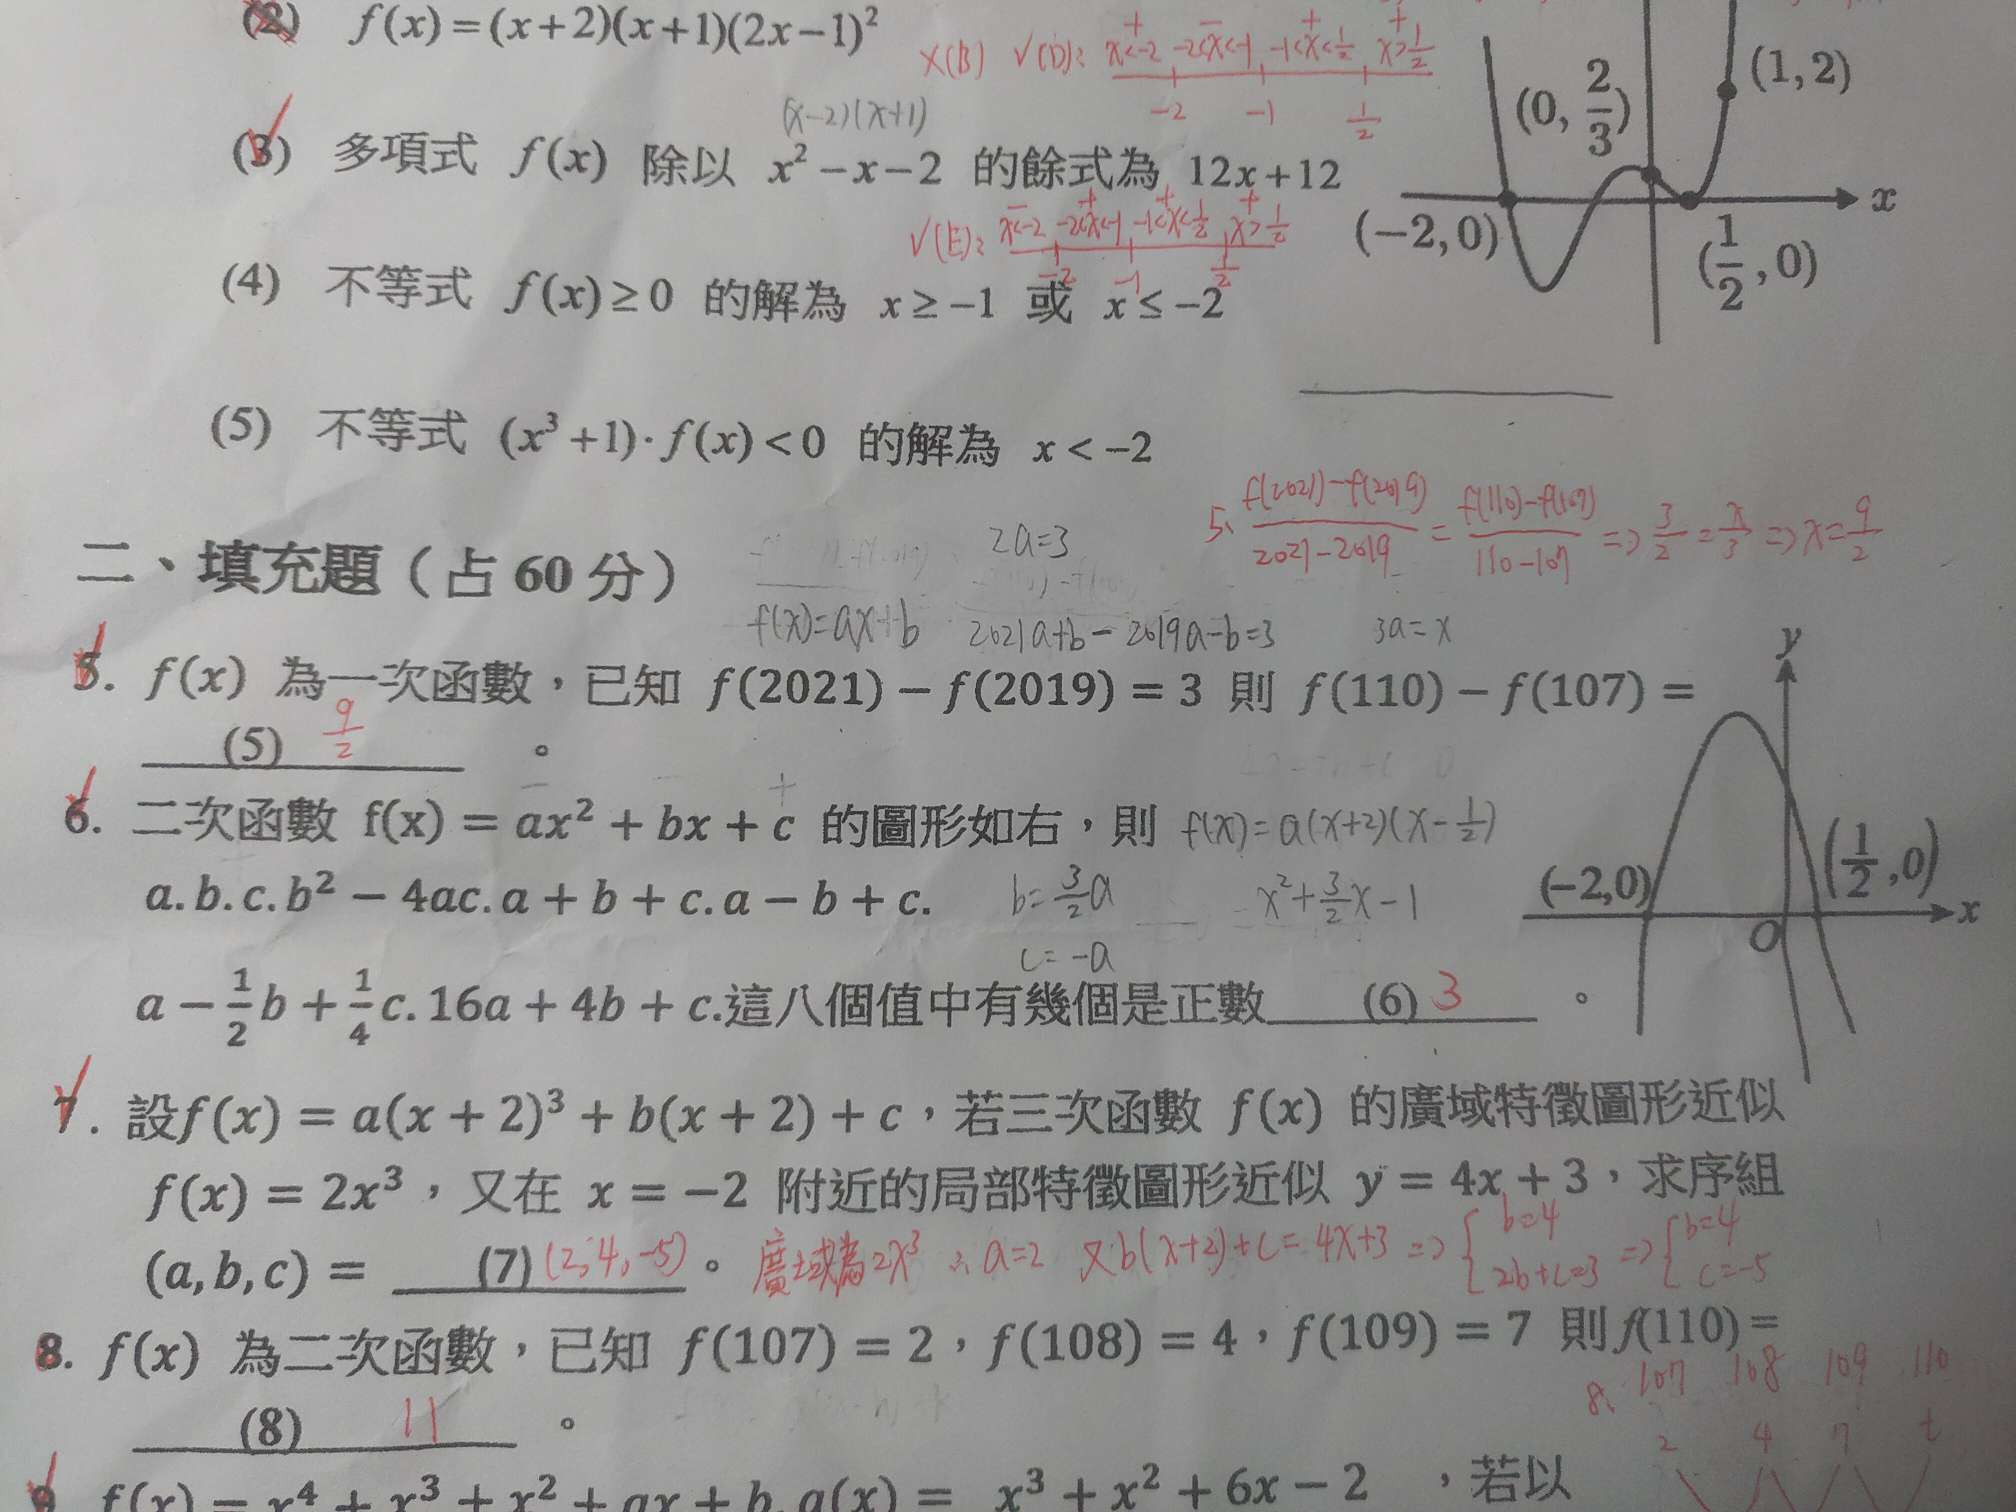 (2) f(x)=(x+2)(x+1)(2x−1)²
X(B) √(D): x<-2 -2<x<-1 -1<x<1/2 x>1/2
+ − + +
-2 -1 1/2
(1,2)
(0, 2/3)
(x-2)(x+1)
(3) 多項式 f(x) 除以 x²−x−2 的餘式為 12x+12
x
(−2,0)
(1/2,0)
√(E): x<-2 -2<x<-1 -1<x<1/2 x>1/2
− + + +
-2 -1 1/2
(4) 不等式 f(x)≥0 的解為 x≥−1 或 x≤−2
(5) 不等式 (x³+1)·f(x)<0 的解為 x<−2
5、 (f(2021)-f(2019))/(2021-2019) = (f(110)-f(107))/(110-107) => 3/2 = x/3 => x=9/2
二、填充題（占 60 分）
2a=3
f(x)=ax+b 2021a+b-2019a-b=3 3a=x
5. f(x) 為一次函數，已知 f(2021)−f(2019)=3 則 f(110)−f(107)=
(5) 9/2 。
y
6. 二次函數 f(x)=ax²+bx+c 的圖形如右，則 f(x)=a(x+2)(x-1/2)
a.b.c.b²−4ac.a+b+c.a−b+c. b=3/2a x²+3/2x-1
c=-a
(−2,0)
(1/2,0)
x
O
a−1/2b+1/4c.16a+4b+c.這八個值中有幾個是正數 (6) 3 。
7. 設f(x)=a(x+2)³+b(x+2)+c，若三次函數 f(x) 的廣域特徵圖形近似
f(x)=2x³，又在 x=−2 附近的局部特徵圖形近似 y=4x+3，求序組
(a,b,c)= (7) (2,4,-5) 。 廣域為2x³ ∴a=2 又b(x+2)+c=4x+3 => {b=4 2b+c=3 => {b=4 c=-5
8. f(x) 為二次函數，已知 f(107)=2，f(108)=4，f(109)=7 則f(110)=
(8) 11 。
8、 107 108 109 110
2 4 7 t
9. f(x)=x⁴+x³+x²+ax+b,g(x)= x³+x²+6x−2 ，若以